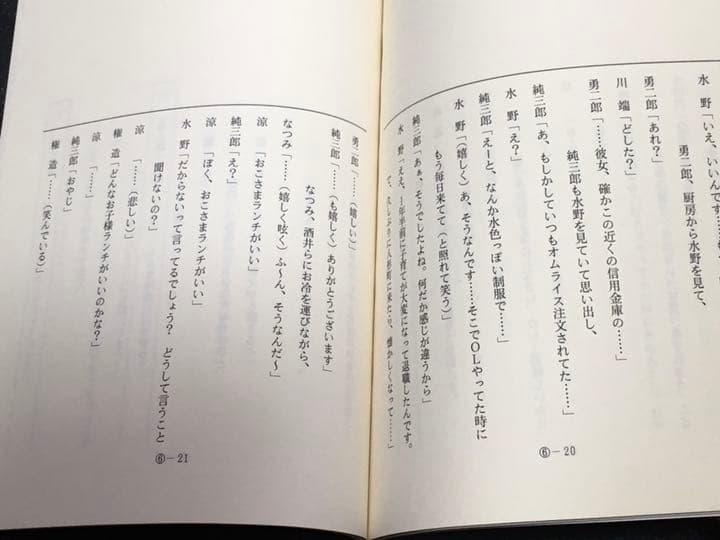 水　野「いえ、いいんです
　　　　勇二郎、厨房から水野を見て、
勇二郎「あれ？」
川　端「どした？」
勇二郎「……彼女、確かこの近くの信用金庫の……」
　　　　純三郎も水野を見ていて思い出し、
純三郎「あ、もしかしていつもオムライス注文されてた……」
水　野「え？」
純三郎「えーと、なんか水色っぽい制服で……」
水　野「（嬉しく）あ、そうなんです……そこでＯＬやってた時に
もう毎日来てて（と照れて笑う）」
純三郎「あぁ、そうでしたよね。何だか感じが違うから」
水　野「ええ、1年半前に子育てが大変になって退職したんです。
で、久しぶりに人形町に来たら、懐かしくなって……」
⑥－20
勇二郎「……（嬉しい）」
純三郎「……（も嬉しく）ありがとうございます」
　　　　なつみ、酒井らにお冷を運びながら、
なつみ「……（嬉しく呟く）ふ～ん、そうなんだ～」
涼　　「おこさまランチがいい」
純三郎「え？」
涼　　「ぼく、おこさまランチがいい」
水　野「だからないって言ってるでしょう？　どうして言うこと
聞けないの？」
涼　　「……（悲しい）」
権　造「どんなお子様ランチがいいのかな？」
涼　　「……」
純三郎「おやじ」
権　造「……（笑んでいる）」
⑥－21